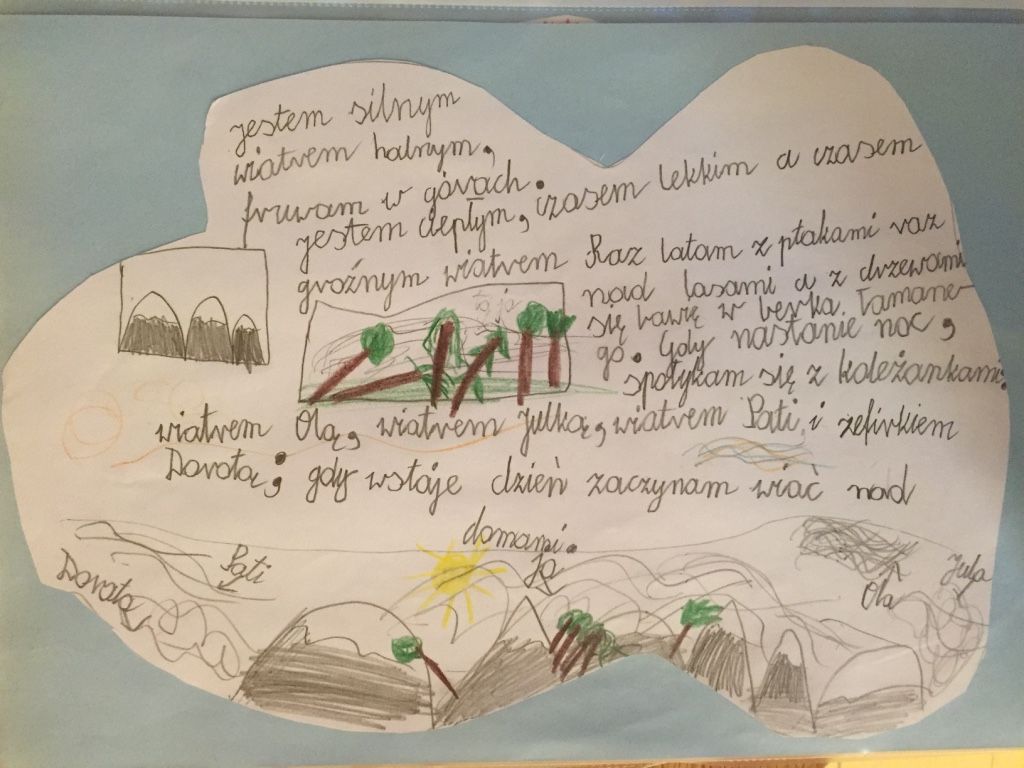 jestem silnym
wiatrem halnym,
fruwam w górach.
jestem ciepłym, czasem lekkim a czasem
groźnym wiatrem Raz latam z ptakami raz
nad lasami a z drzewami
się bawię w berka łamane-
go. Gdy nastanie noc,
spotykam się z koleżankami:
to ja
wiatrem Olą, wiatrem Julką, wiatrem Pati, i zefirkiem
Dorotą; gdy wstaje dzień zaczynam wiać nad
domami.
Dorota
Pati
Ja
Ola
Jula